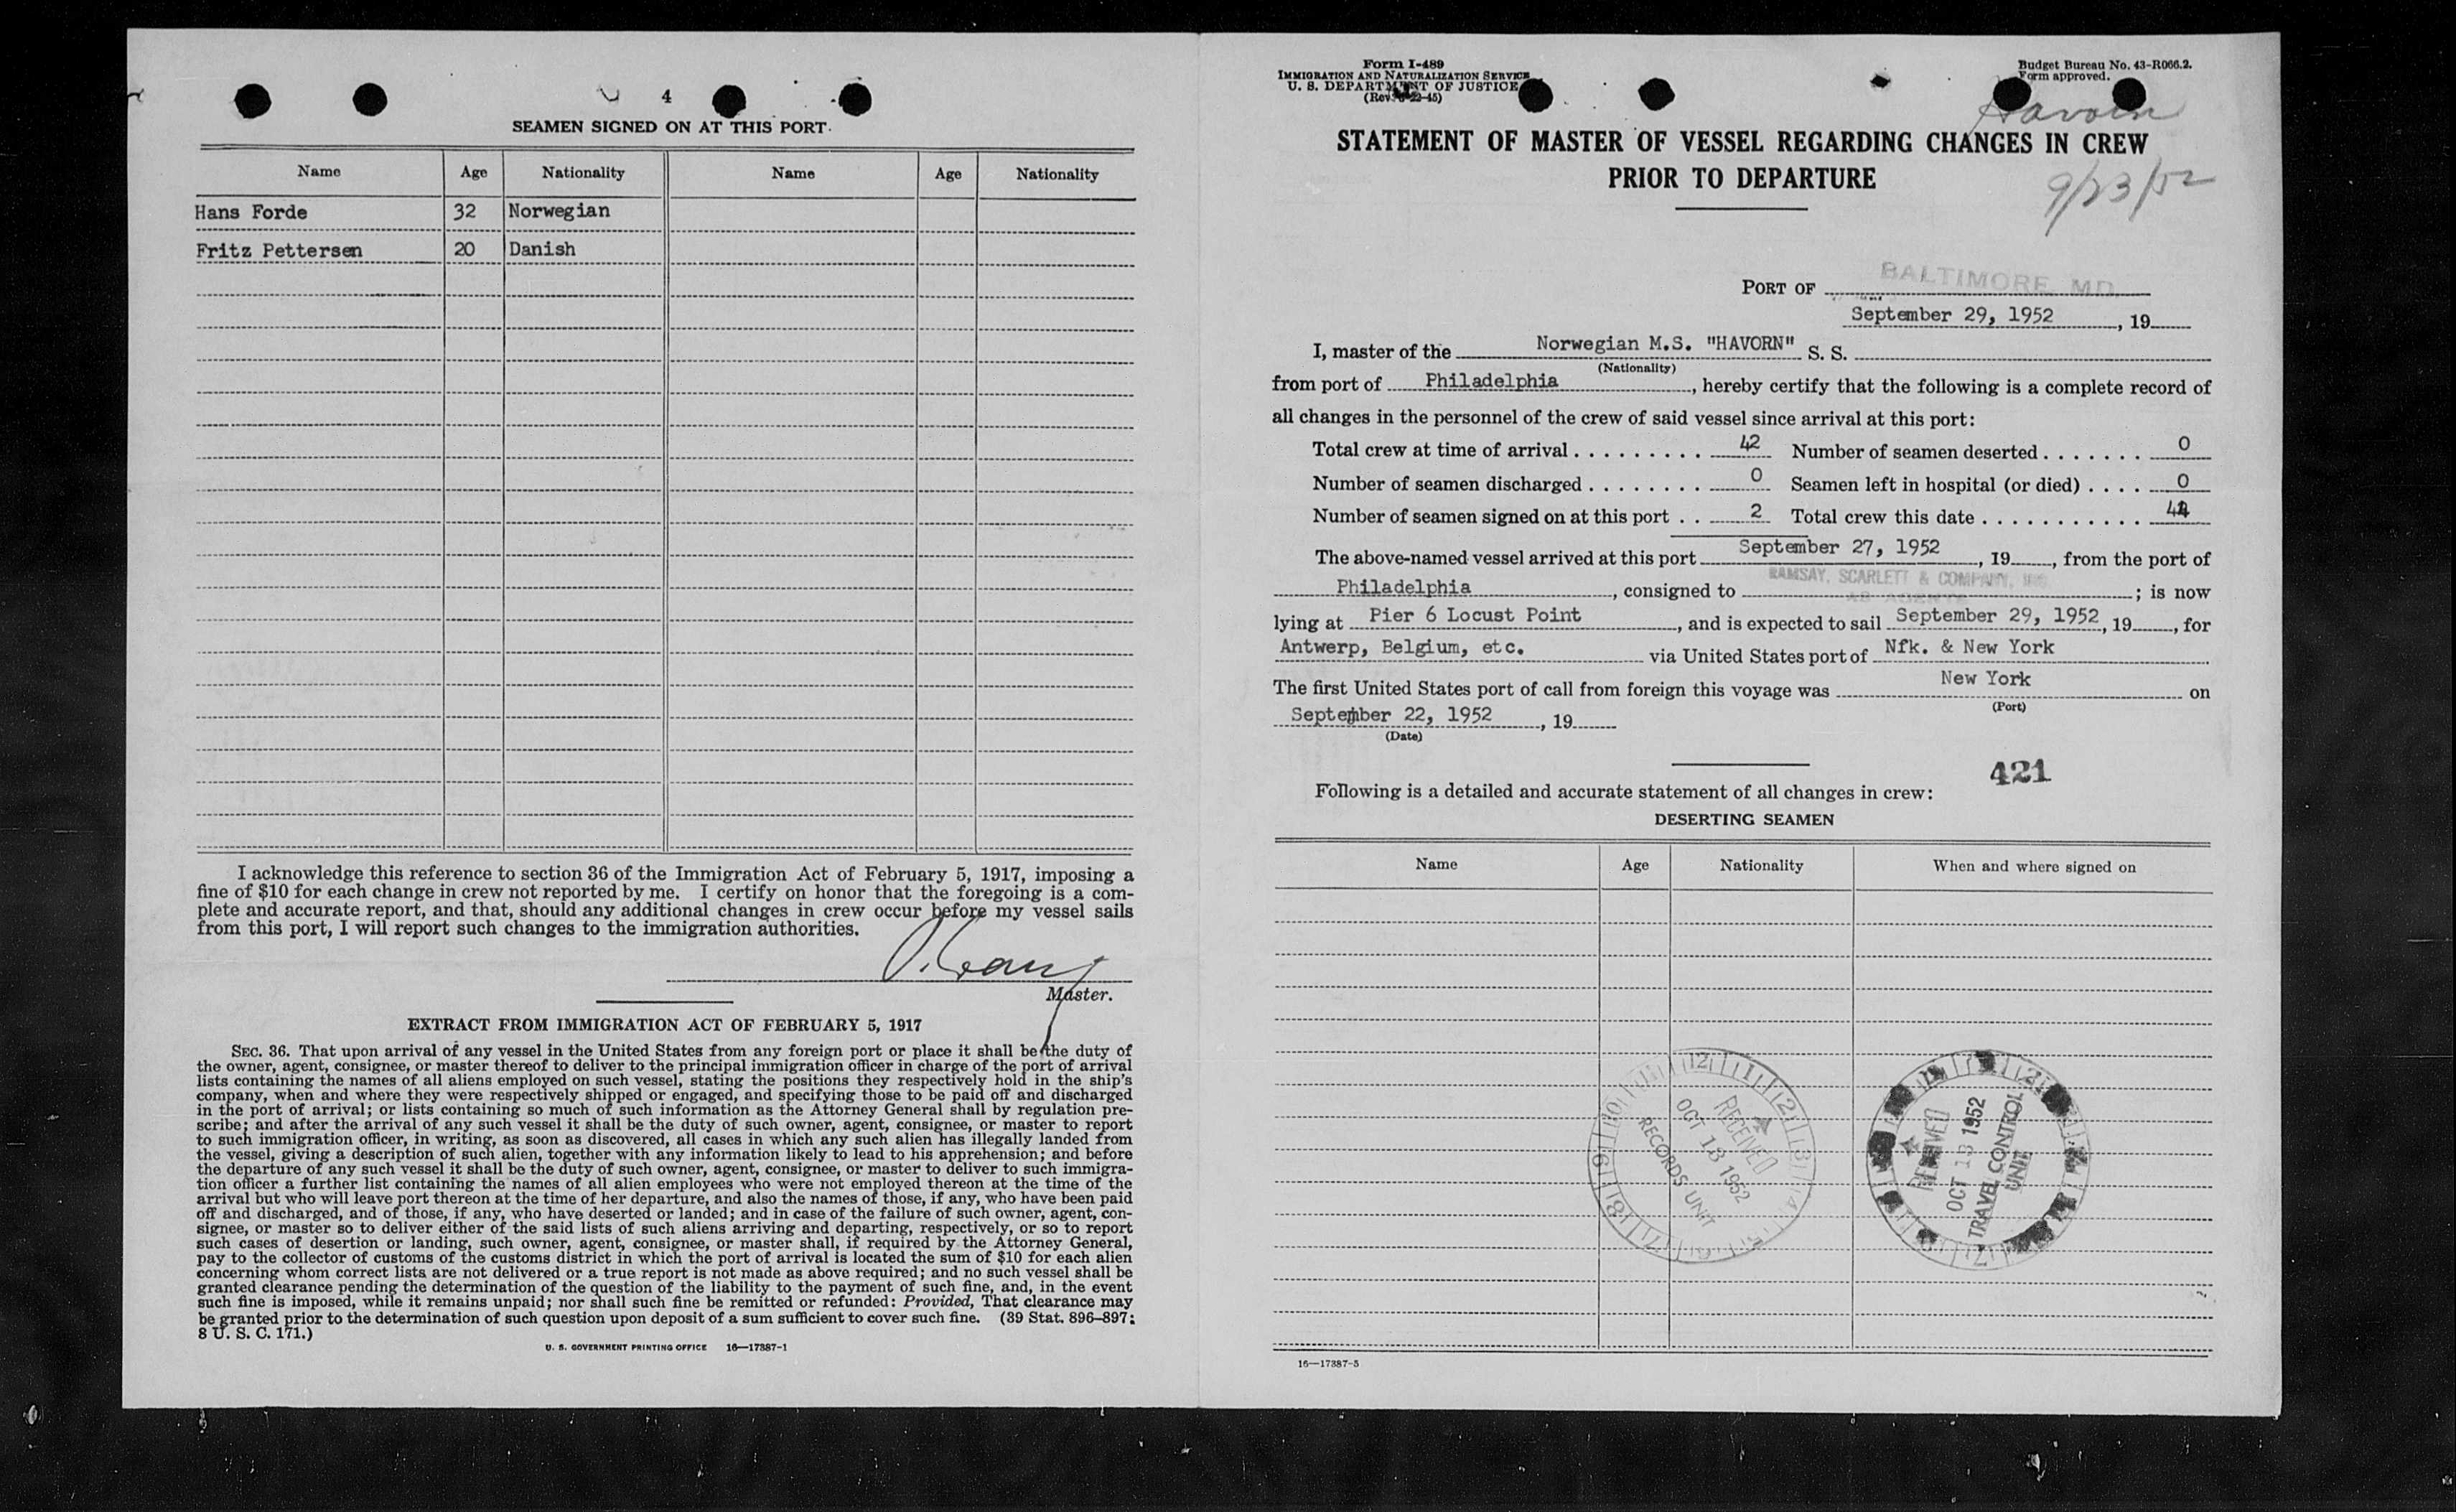 4
SEAMEN SIGNED ON AT THIS PORT
Name Age Nationality Name Age Nationality
Hans Forde 32 Norwegian
Fritz Pettersen 20 Danish
I acknowledge this reference to section 36 of the Immigration Act of February 5, 1917, imposing a
fine of $10 for each change in crew not reported by me. I certify on honor that the foregoing is a com-
plete and accurate report, and that, should any additional changes in crew occur before my vessel sails
from this port, I will report such changes to the immigration authorities.
Master.
EXTRACT FROM IMMIGRATION ACT OF FEBRUARY 5, 1917
SEC. 36. That upon arrival of any vessel in the United States from any foreign port or place it shall be the duty of
the owner, agent, consignee, or master thereof to deliver to the principal immigration officer in charge of the port of arrival
lists containing the names of all aliens employed on such vessel, stating the positions they respectively hold in the ship's
company, when and where they were respectively shipped or engaged, and specifying those to be paid off and discharged
in the port of arrival; or lists containing so much of such information as the Attorney General shall by regulation pre-
scribe; and after the arrival of any such vessel it shall be the duty of such owner, agent, consignee, or master to report
to such immigration officer, in writing, as soon as discovered, all cases in which any such alien has illegally landed from
the vessel, giving a description of such alien, together with any information likely to lead to his apprehension; and before
the departure of any such vessel it shall be the duty of such owner, agent, consignee, or master to deliver to such immigra-
tion officer a further list containing the names of all alien employees who were not employed thereon at the time of the
arrival but who will leave port thereon at the time of her departure, and also the names of those, if any, who have been paid
off and discharged, and of those, if any, who have deserted or landed; and in case of the failure of such owner, agent, con-
signee, or master so to deliver either of the said lists of such aliens arriving and departing, respectively, or so to report
such cases of desertion or landing, such owner, agent, consignee, or master shall, if required by the Attorney General,
pay to the collector of customs of the customs district in which the port of arrival is located the sum of $10 for each alien
concerning whom correct lists are not delivered or a true report is not made as above required; and no such vessel shall be
granted clearance pending the determination of the question of the liability to the payment of such fine, and, in the event
such fine is imposed, while it remains unpaid; nor shall such fine be remitted or refunded: Provided, That clearance may
be granted prior to the determination of such question upon deposit of a sum sufficient to cover such fine. (39 Stat. 896–897;
8 U. S. C. 171.)
U. S. GOVERNMENT PRINTING OFFICE 16—17387-1
Form I-489
IMMIGRATION AND NATURALIZATION SERVICE
U. S. DEPARTMENT OF JUSTICE
Budget Bureau No. 43-R066.2.
Form approved.
Havorn
STATEMENT OF MASTER OF VESSEL REGARDING CHANGES IN CREW
PRIOR TO DEPARTURE
9/23/52
PORT OF BALTIMORE, MD.
September 29, 1952, 19
I, master of the Norwegian M.S. "HAVORN" S. S.
(Nationality)
from port of Philadelphia, hereby certify that the following is a complete record of
all changes in the personnel of the crew of said vessel since arrival at this port:
Total crew at time of arrival . . . . . . . . . 42 Number of seamen deserted . . . . . . . 0
Number of seamen discharged . . . . . . . . 0 Seamen left in hospital (or died) . . . . 0
Number of seamen signed on at this port . . 2 Total crew this date . . . . . . . . . . . 44
The above-named vessel arrived at this port September 27, 1952, 19, from the port of
Philadelphia, consigned to RAMSAY, SCARLETT & COMPANY, INC. AS AGENTS; is now
lying at Pier 6 Locust Point, and is expected to sail September 29, 1952, 19, for
Antwerp, Belgium, etc. via United States port of Nfk. & New York
The first United States port of call from foreign this voyage was New York on
(Port)
September 22, 1952, 19
(Date)
421
Following is a detailed and accurate statement of all changes in crew:
DESERTING SEAMEN
Name Age Nationality When and where signed on
RECEIVED
OCT 13 1952
RECORDS UNIT
RECEIVED
OCT 13 1952
TRAVEL CONTROL
UNIT
16—17387-5